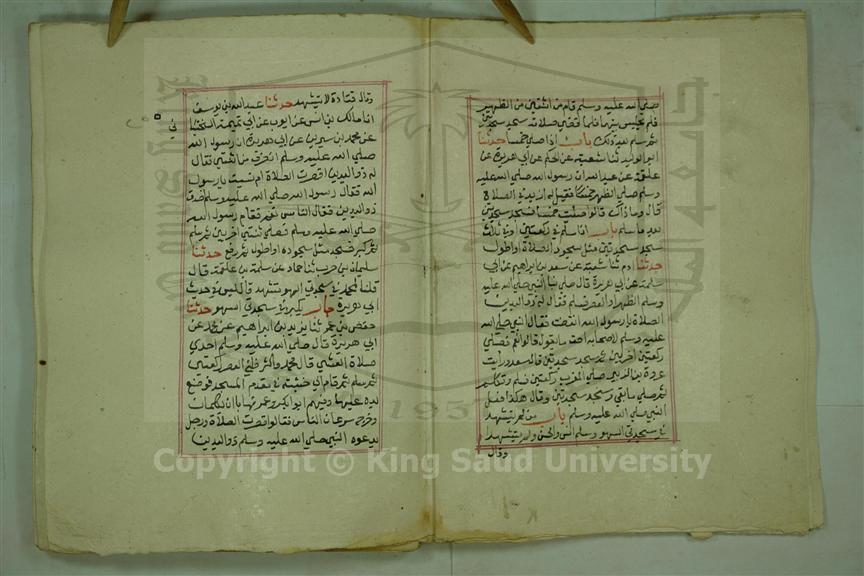 صلى الله عليه وسلم قام من اثنتين من الظهر
فلم يجلس بينهما فلما قضى صلاته سجد سجدتين
ثم سلم بعد ذلك باب اذا صلى خمسا حدثنا
ابو الوليد ثنا شعبة عن الحكم عن ابراهيم عن
علقمة عن عبد الله ان رسول الله صلى الله عليه
وسلم صلى الظهر خمسا فقيل له ازيد في الصلاة
قال وما ذاك قالوا صليت خمسا فسجد سجدتين
بعد ما سلم باب اذا سلم في ركعتين او في ثلاث
سجد سجدتين مثل سجود الصلاة او اطول
حدثنا ادم ثنا شعبة عن سعد بن ابراهيم عن ابي
سلمة عن ابي هريرة قال صلى بنا النبي صلى الله عليه
وسلم الظهر او العصر فسلم فقال له ذو اليدين
الصلاة يا رسول الله انقصت فقال النبي صلى الله
عليه وسلم لاصحابه احق ما يقول قالوا نعم فصلى
ركعتين اخريين ثم سجد سجدتين قال سعد ورايت
عروة بن الزبير صلى المغرب ركعتين فسلم وتكلم
ثم صلى ما بقي وسجد سجدتين وقال هكذا فعل
النبي صلى الله عليه وسلم باب من لم يتشهد
في سجدتي السهو وسلم انس والحسن ولم يتشهدا
وقال
وقال قتادة لا يتشهد حدثنا عبد الله بن يوسف
انا مالك بن انس عن ايوب عن ابي تميمة السختياني
عن محمد بن سيرين عن ابي هريرة ان رسول الله
صلى الله عليه وسلم انصرف من اثنتين فقال
له ذو اليدين اقصرت الصلاة ام نسيت يا رسول
الله فقال رسول الله صلى الله عليه وسلم اصدق
ذو اليدين فقال الناس نعم فقام رسول الله
صلى الله عليه وسلم فصلى ثنتين اخريين ثم سلم
ثم كبر فسجد مثل سجوده او اطول ثم رفع حدثنا
سليمان بن حرب ثنا حماد عن سلمة بن علقمة قال
قلت لمحمد في سجدتي السهو تشهد قال ليس في حديث
ابي هريرة باب يكبر في سجدتي السهو حدثنا
حفص بن عمر ثنا يزيد بن ابراهيم عن محمد عن
ابي هريرة قال صلى الله عليه وسلم احدى
صلاة العشي قال محمد واكثر ظني العصر ركعتين
ثم سلم ثم قام الى خشبة في مقدم المسجد فوضع
يده عليها وفيهم ابو بكر وعمر فهابا ان يكلماه
وخرج سرعان الناس فقالوا قصرت الصلاة ورجل
يدعوه النبي صلى الله عليه وسلم ذو اليدين
Copyright © King Saud University
1957